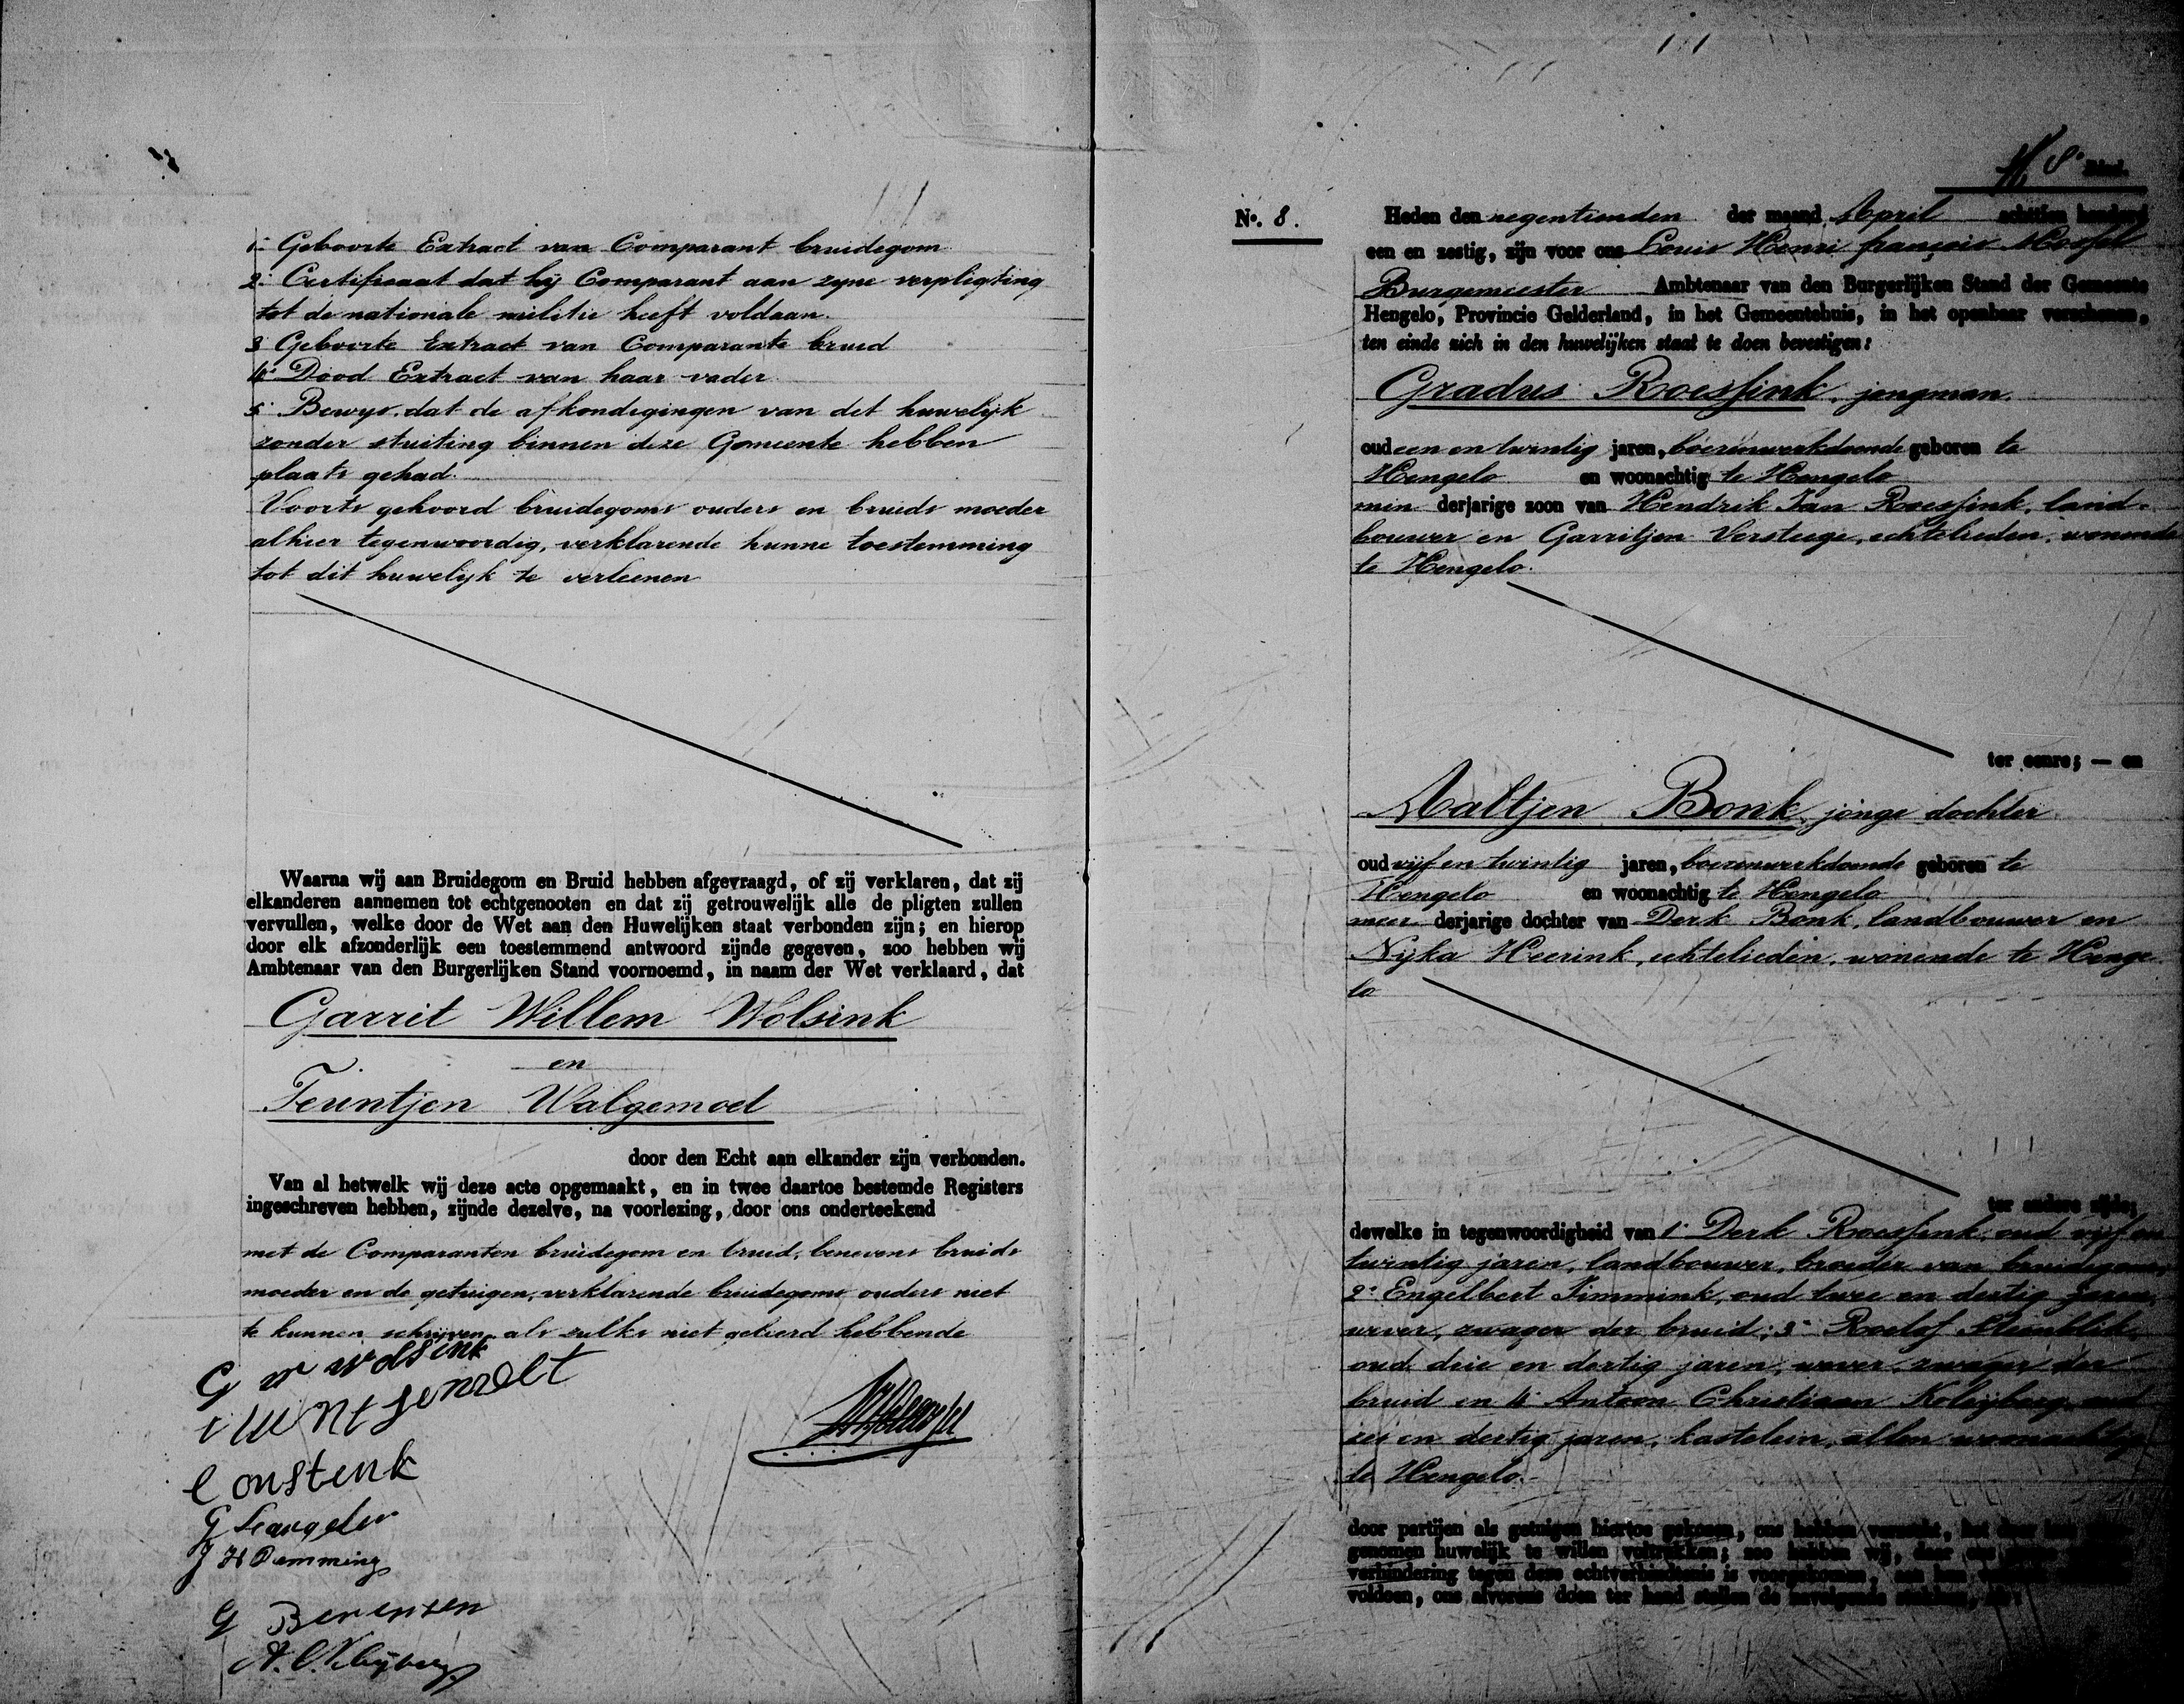 1º Geboorte Extract van Comparant bruidegom
2º Certificaat dat hij Comparant aan zyne verpligting
tot de nationale militie heeft voldaan.
3 Geboorte Extract van Comparante bruid
4º Dood Extract van haar vader
5º Bewys dat de afkondigingen van det huwelijk
zonder stuiting binnen deze Gemeente hebben
plaats gehad.
Voorts gehoord bruidegoms ouders en bruids moeder
alhier tegenwoordig, verklarende hunne toestemming
tot dit huwelijk te verleenen
Waarna wij aan Bruidegom en Bruid hebben afgevraagd, of zij verklaren, dat zij
elkanderen aannemen tot echtgenooten en dat zij getrouwelijk alle de pligten zullen
vervullen, welke door de Wet aan den Huwelijken staat verbonden zijn; en hierop
door elk afzonderlijk een toestemmend antwoord zijnde gegeven, zoo hebben wij
Ambtenaar van den Burgerlijken Stand voornoemd, in naam der Wet verklaard, dat
Garrit Willem Wolsink
en
Teuntjen Walgemoet
door den Echt aan elkander zijn verbonden.
Van al hetwelk wij deze acte opgemaakt, en in twee daartoe bestemde Registers
ingeschreven hebben, zijnde dezelve, na voorlezing, door ons onderteekend
met de Comparanten bruidegom en bruid, benevens bruids
moeder en de getuigen, verklarende bruidegoms ouders niet
te kunnen schrijven als zulks niet geleerd hebbende
G W Wolsink
Constenk
J H Demming
G Berensen
A. C. Kleyberg
8º Blad.
Nº. 8.
Heden den negentienden der maand April achttien honderd
een en zestig, zijn voor ons Louis Henri françois
Burgemeester Ambtenaar van den Burgerlijken Stand der Gemeente
Hengelo, Provincie Gelderland, in het Gemeentehuis, in het openbaar verschenen,
ten einde zich in den huwelijken staat te doen bevestigen:
Gradus Roessink, jongman.
oud een en twintig jaren, boerenwerkdoende geboren te
Hengelo en woonachtig te Hengelo
min derjarige zoon van Hendrik Jan Roessink, land-
bouwer en Garritjen Versteege, echtelieden, wonende
te Hengelo.
ter eenre; — en
Aaltjen Bonk, jonge dochter
oud vijf en twintig jaren, boerenwerkdoende geboren te
Hengelo en woonachtig te Hengelo
meer derjarige dochter van Derk Bonk, landbouwer en
Nijka Heerink, echtelieden, wonende te Henge
lo
ter andere zijde;
dewelke in tegenwoordigheid van 1º Derk Roessink, oud vijf en
twintig jaren, landbouwer, broeder van bruidegom,
2º Engelbert Timmink, oud twee en dertig jaren,
wever, zwager der bruid; 3º Roelof
oud drie en dertig jaren, wever, zwager der
bruid en 4º Antoon Christiaan Kleyberg, oud
zes en dertig jaren, kastelein, allen woonachtig
te Hengelo.
door partijen als getuigen hiertoe gekozen, ons hebben verzocht, het door hen
genomen huwelijk te willen voltrekken; zoo hebben wij, daar ons geene
verhindering tegen deze echtverbindtenis is voorgekomen, aan hun
voldoen, ons alvorens doen ter hand stellen de navolgende stukken, als: